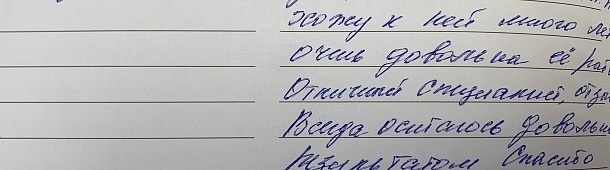 хожу к ней много лет
очень довольна её раб
Отличный специалист, отзы
Всегда остаюсь довольн
результатом Спасибо